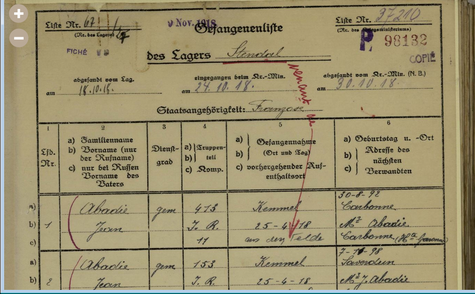 Liste Nr. 67
(Nr. des Lagers)
9 Nov. 1918
Gefangenenliste
Liste Nr. 37210
(Nr. des
P 98132
FICHÉ
des Lagers Stendal
COPIÉ
abgesandt vom Lag.
eingegangen beim Kr.-Min.
abgesandt vom Kr.-Min. (N. B.)
am 18.10.18.
am 24.10.18.
am 30.10.18
venant de
Staatsangehörigkeit: Français
1 2 3 4 5 6
Lfd. Nr.
a) Familienname
b) Vorname (nur der Rufname)
c) nur bei Russen Vorname des Vaters
Dienst-
grad
a) Truppen-
teil
c) Komp.
a) Gefangennahme
(Ort und Tag)
c) vorhergehender Auf-
enthaltsort
a) Geburtstag u. -Ort
b) Adresse des
nächsten
c) Verwandten
30-8-92
a) Abadie gem 415 Kemmel Carbonne
b) 1 Jean J. R. 25-4-18 Abadie
c) 11 aus dem Felde Carbonne
a) Abadie gem 153 Kemmel
b) 2 Jean J. R. 25-4-18 J. Abadie